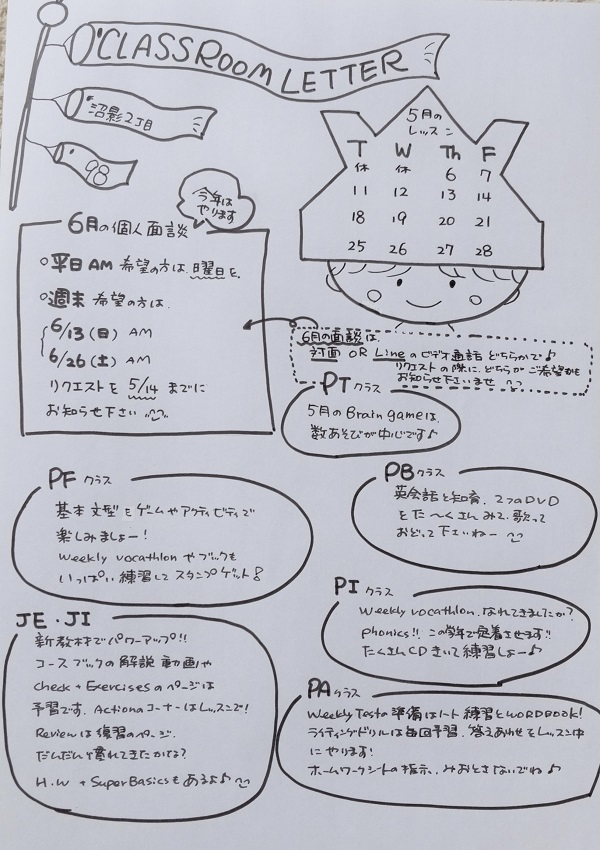 CLASSROOM LETTER
沼影2丁目
98
5月の
レッスン
T W Th F
休 休 6 7
11 12 13 14
18 19 20 21
25 26 27 28
今年は
やります
6月の個人面談
○平日AM 希望の方は、曜日を、
○週末 希望の方は、
6/13(日) AM
6/26(土) AM
リクエストを 5/14 までに
お知らせ下さい
6月の面談は、
対面 OR Lineのビデオ通話 どちらかで♪
リクエストの際に、どちらがご希望かも
お知らせ下さいませ
PTクラス
5月のBrain gameは、
数あそびが中心です♪
PFクラス
基本文型をゲームやアクティビティで
楽しみましょー!
Weekly vocathlonやブックも
いっぱい練習してスタンプゲット!
PBクラス
英会話と知育、2つのDVD
をた〜くさんみて、歌って
おどって下さいねー
PIクラス
Weekly vocathlon、なれてきましたか?
phonics!! この学年で定着させます!!
たくさんCDきいて練習しよー♪
JE・JI
新教材でパワーアップ!!
コースブックの解説動画や
Check + Exercisesのページは
予習です。Actionコーナーはレッスンで!
Reviewは復習のページ。
だんだんと慣れてきたかな?
H.W + SuperBasicsもあるよ♪
PAクラス
Weekly Testの準備はノート練習とWORDBOOK!
ライティングドリルは毎回予習、答えあわせをレッスン中
にやります!
ホームワークシートの指示、みおとさないでね♪